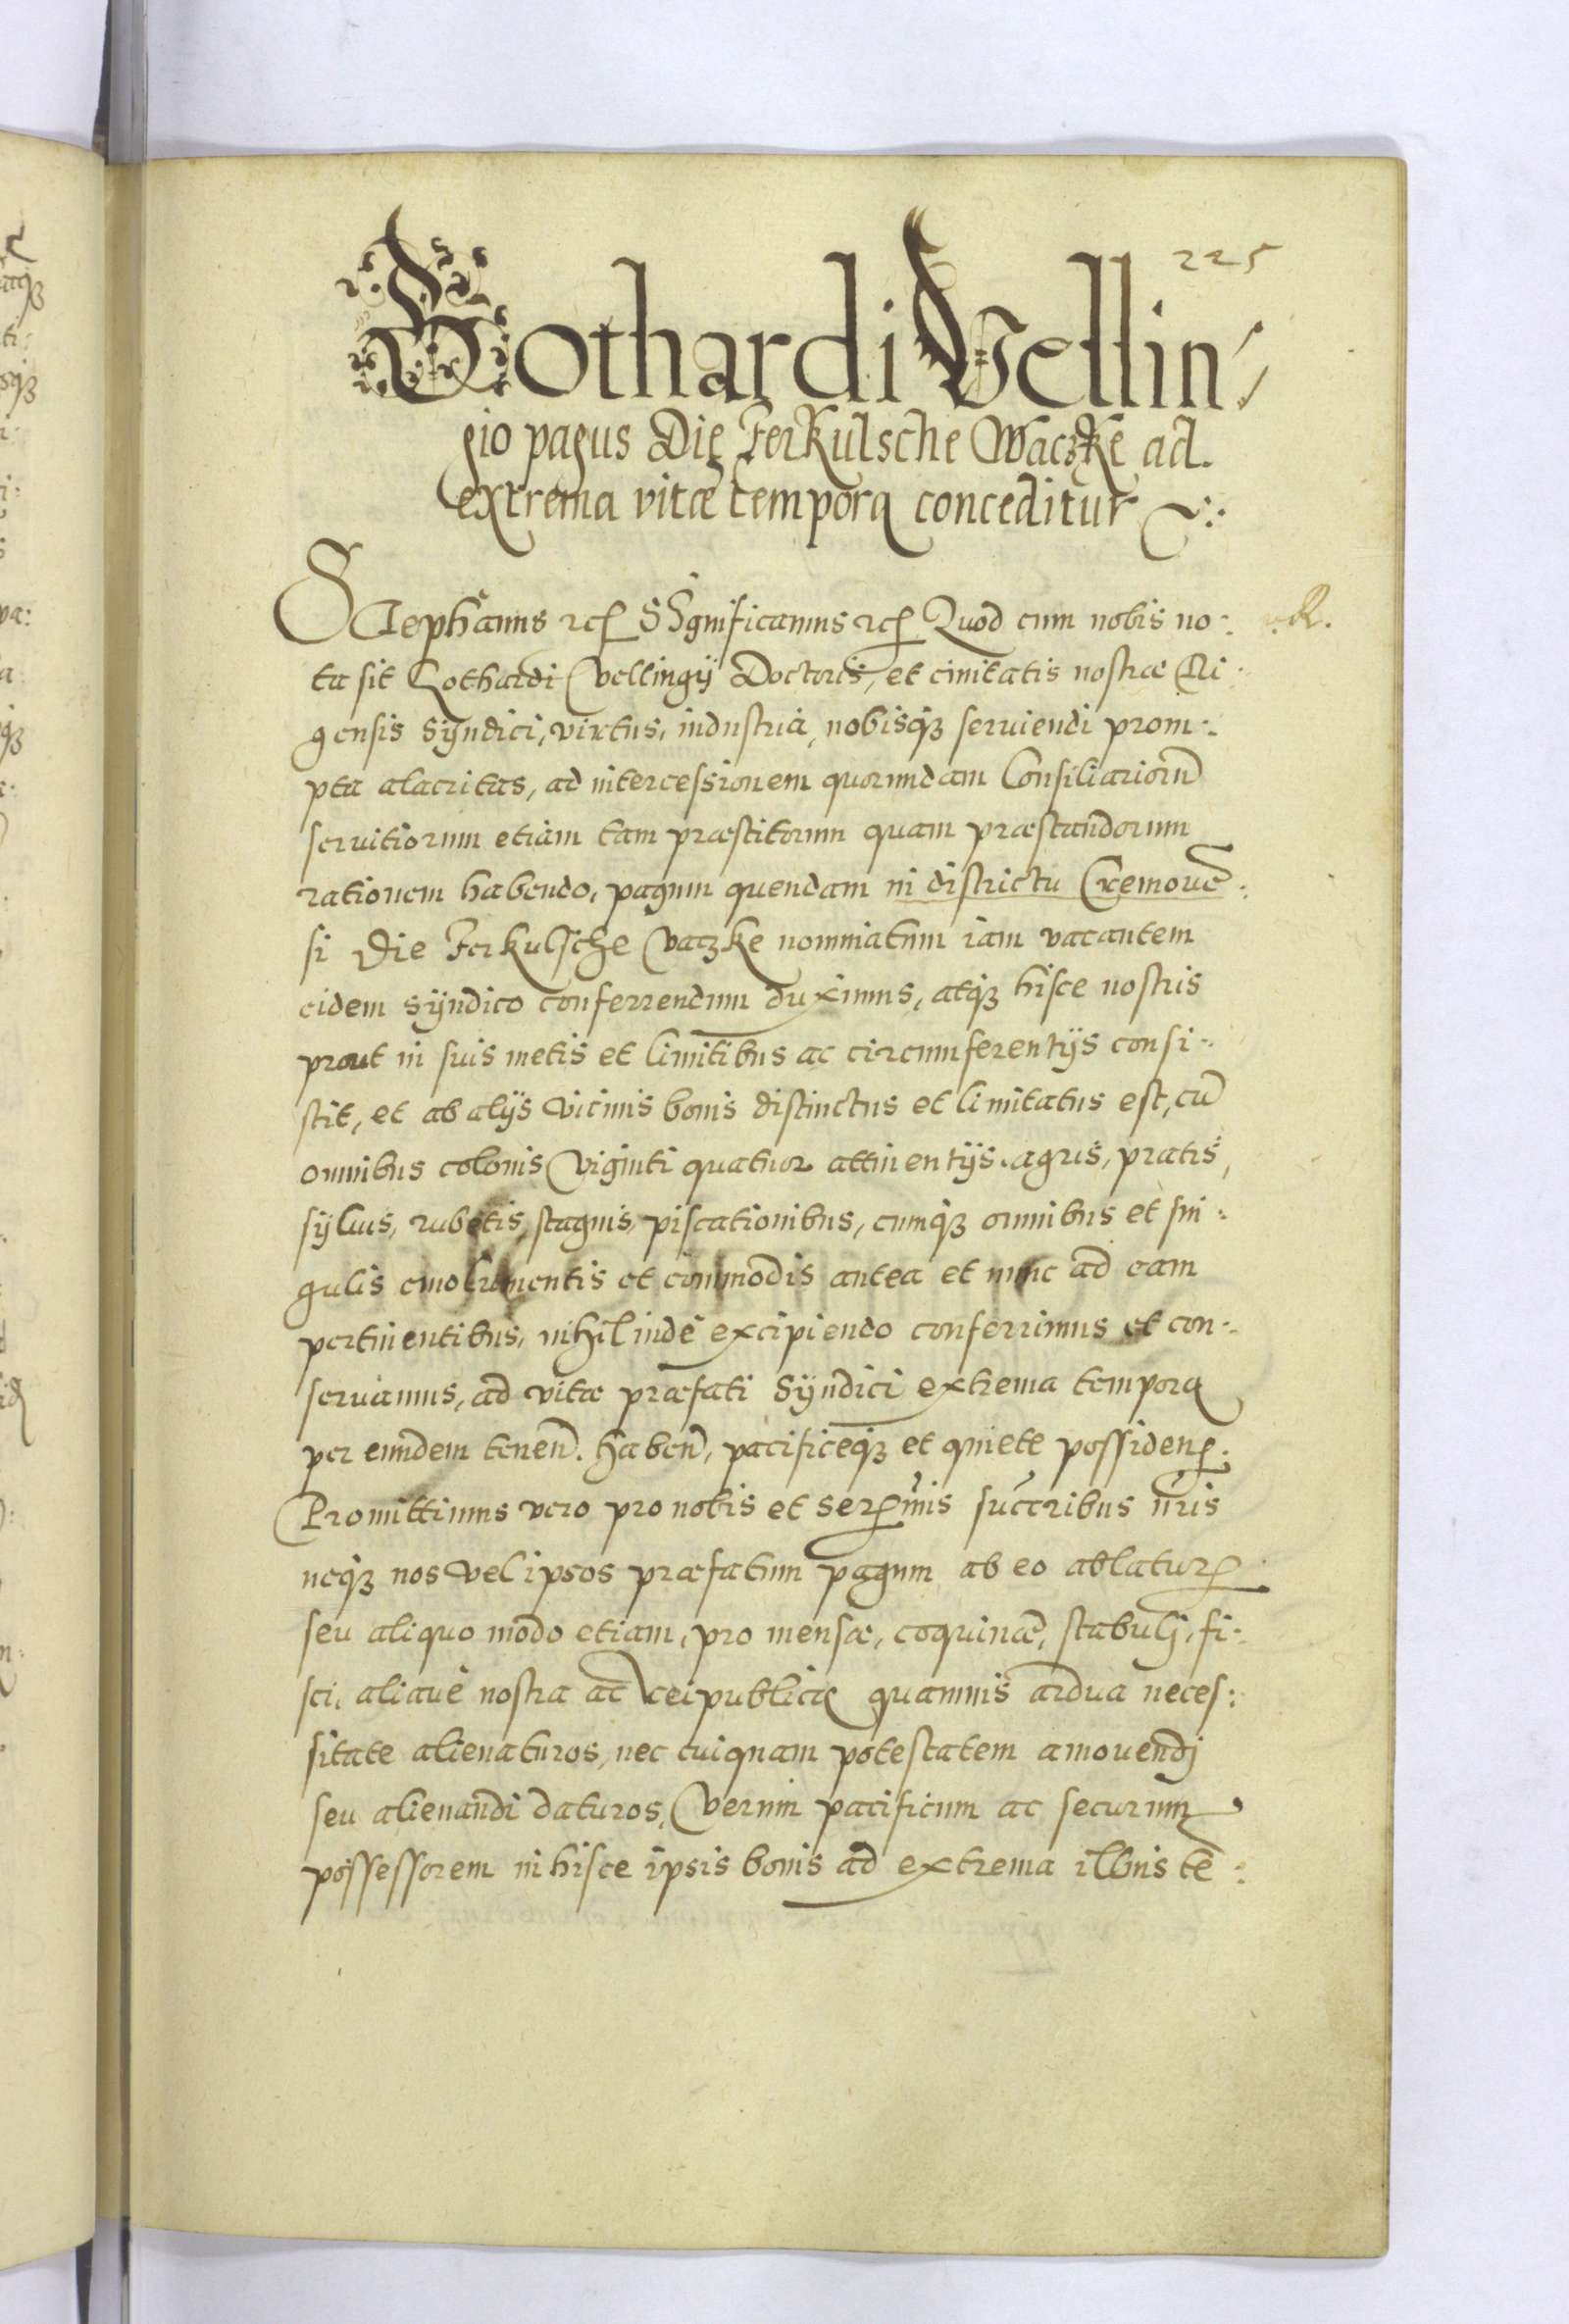 225
Gothardi Vellin
gio pagus Die Ferkulsche Waczke ad.
extrema vitæ tempora conceditur
Stephanus etc Significamus etc Quod cum nobis no:
ta sit Gothardi Vellingij Doctoris, et ciuitatis nostræ Ri:
gensis Syndici, virtus, industria, nobisq; seruiendi prom:
pta alacritas, ad intercessionem quorundam Consiliariorũ
seruitiorum etiam tam præstitorum quam præstandorum
rationem habendo, pagum quendam in districtu Cremonẽ:
si Die Ferkulsche Vaczke nominatum iam vacantem
eidem Syndico conferrendum duximus, atq; hisce nostris
prout in suis metis et limitibus ac circumferentijs consi:
stit, et ab alijs vicinis bonis distinctus et limitatus est, cũ
omnibus colonis Viginti quatuor attinentijs. agris, pratis,
syluis, rubetis, stagnis, piscationibus, cumq; omnibus et sin:
gulis emolumentis et commodis antea et nunc ad eam
pertinentibus, nihil inde excipiendo conferrimus et con:
seruamus, ad vitæ præfati Syndici extrema tempora
per eundem tenen̄. haben̄, pacificeq; et quiete possiden̄.
Promittimus vero pro nobis et Ser̄mis succribus n̄ris
neq; nos vel ipsos præfatum pagum ab eo ablatur
seu aliquo modo etiam, pro mensæ, coquinæ, stabuli, fi:
sci, aliaue nostra ac Reipublicæ quamuis ardua neces:
sitate alienaturos, nec cuiquam potestatem amouendi
seu alienandi daturos, Verum pacificum ac securum
possessorem in hisce ipsis bonis ad extrema illius tẽ: